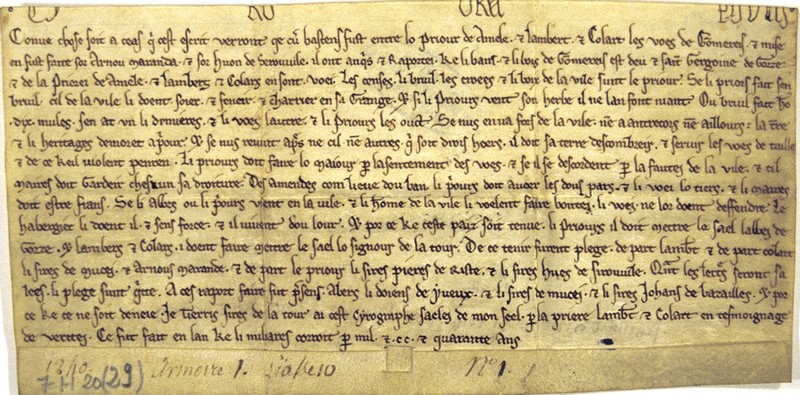 Conue chose soit a toz q̃ cest escrit verront ge cū bastens fust entre lo priour de Amele . & lambert . & Colart les voes de Gomereis . & mise
en fust faite sor Arnou Maranda . & sor Huon de Serouuile . il ont anq̃s & Raportei . Ke li bans . & li bois de Gomereis est deu & saint Gergoine de Gorze
& de la Priorei de Amele . & lamberz . & Colars en sont . voei . Les censes . li bruil . les croees & li bois de la vile sunt le priour . Se li priors fait sen
bruil . cil de la vile li doent soier . & fener . & charrier en sa Grange . & si li Priours vent son herbe il ne lan sont niant Ou bruil fait hō
dix mules . sen at un li & li voes lautre . & li priours les ouct . Se nus en va fors de la vile . ne a antrecors ne aillours . la tr̃e
& li heritages demoret a p̃our . & se nus revint ap̃s ne cil ne autres . q̃ soit drois hoers . il doit sa terre descombreir . & servir les voes de taille
& de ce Keil violent penren . Li priours doit faire lo maiour p̱ lasentement des voes . & se il se descordent p̱ la fautei de la vile . & cil
maires doit Gardeir chescun sa droiture . Des amendes com lieve dou ban li p̃ours doit avoer les dous pars . & li voei lo tiers . & li maires
doit estre frans . Se li abbes ou li p̃ours vient en la vile . & li home de la vile li voelent faire bontei . li voei . ne lor doent deffendre . Le
habergier li doent il . & sens force . & il vivent dou lour . & por ce Ke ceste paix soit tenue . li priours il doit mettre lo sael labbei de
Gorze . & lamberz & Colars . i doent faire mettre lo sael lo signour de la tour . De ce tenir furent plege . de part lamb̃t & de part colart
li sires de Mucei . & Arnous Marande . & de part le priour li sires Pieres de Riste . & li sires Hues de Sirouuile . Quāt les lettres seront sa
lees . li plege sunt q̃tte . A ces raport faire fut p̃sens . Abers li doiens de yueux . & li sires de mucei . & li sires Johans de bazailles . & por
ce Ke ce ne soit deneie Je Tierris sires de la tour ai cest cyrographe saelei de mon seel . p̱ la priere lamb̃t & Colart en tesmoignage
de veritei . Ce fut fait en lan Ke li miliares corroit p̱ mil . & . cc . & quarante Ans
1240 Armoire 1. Liasse 10 N.º 1.
7 H 20 (29)